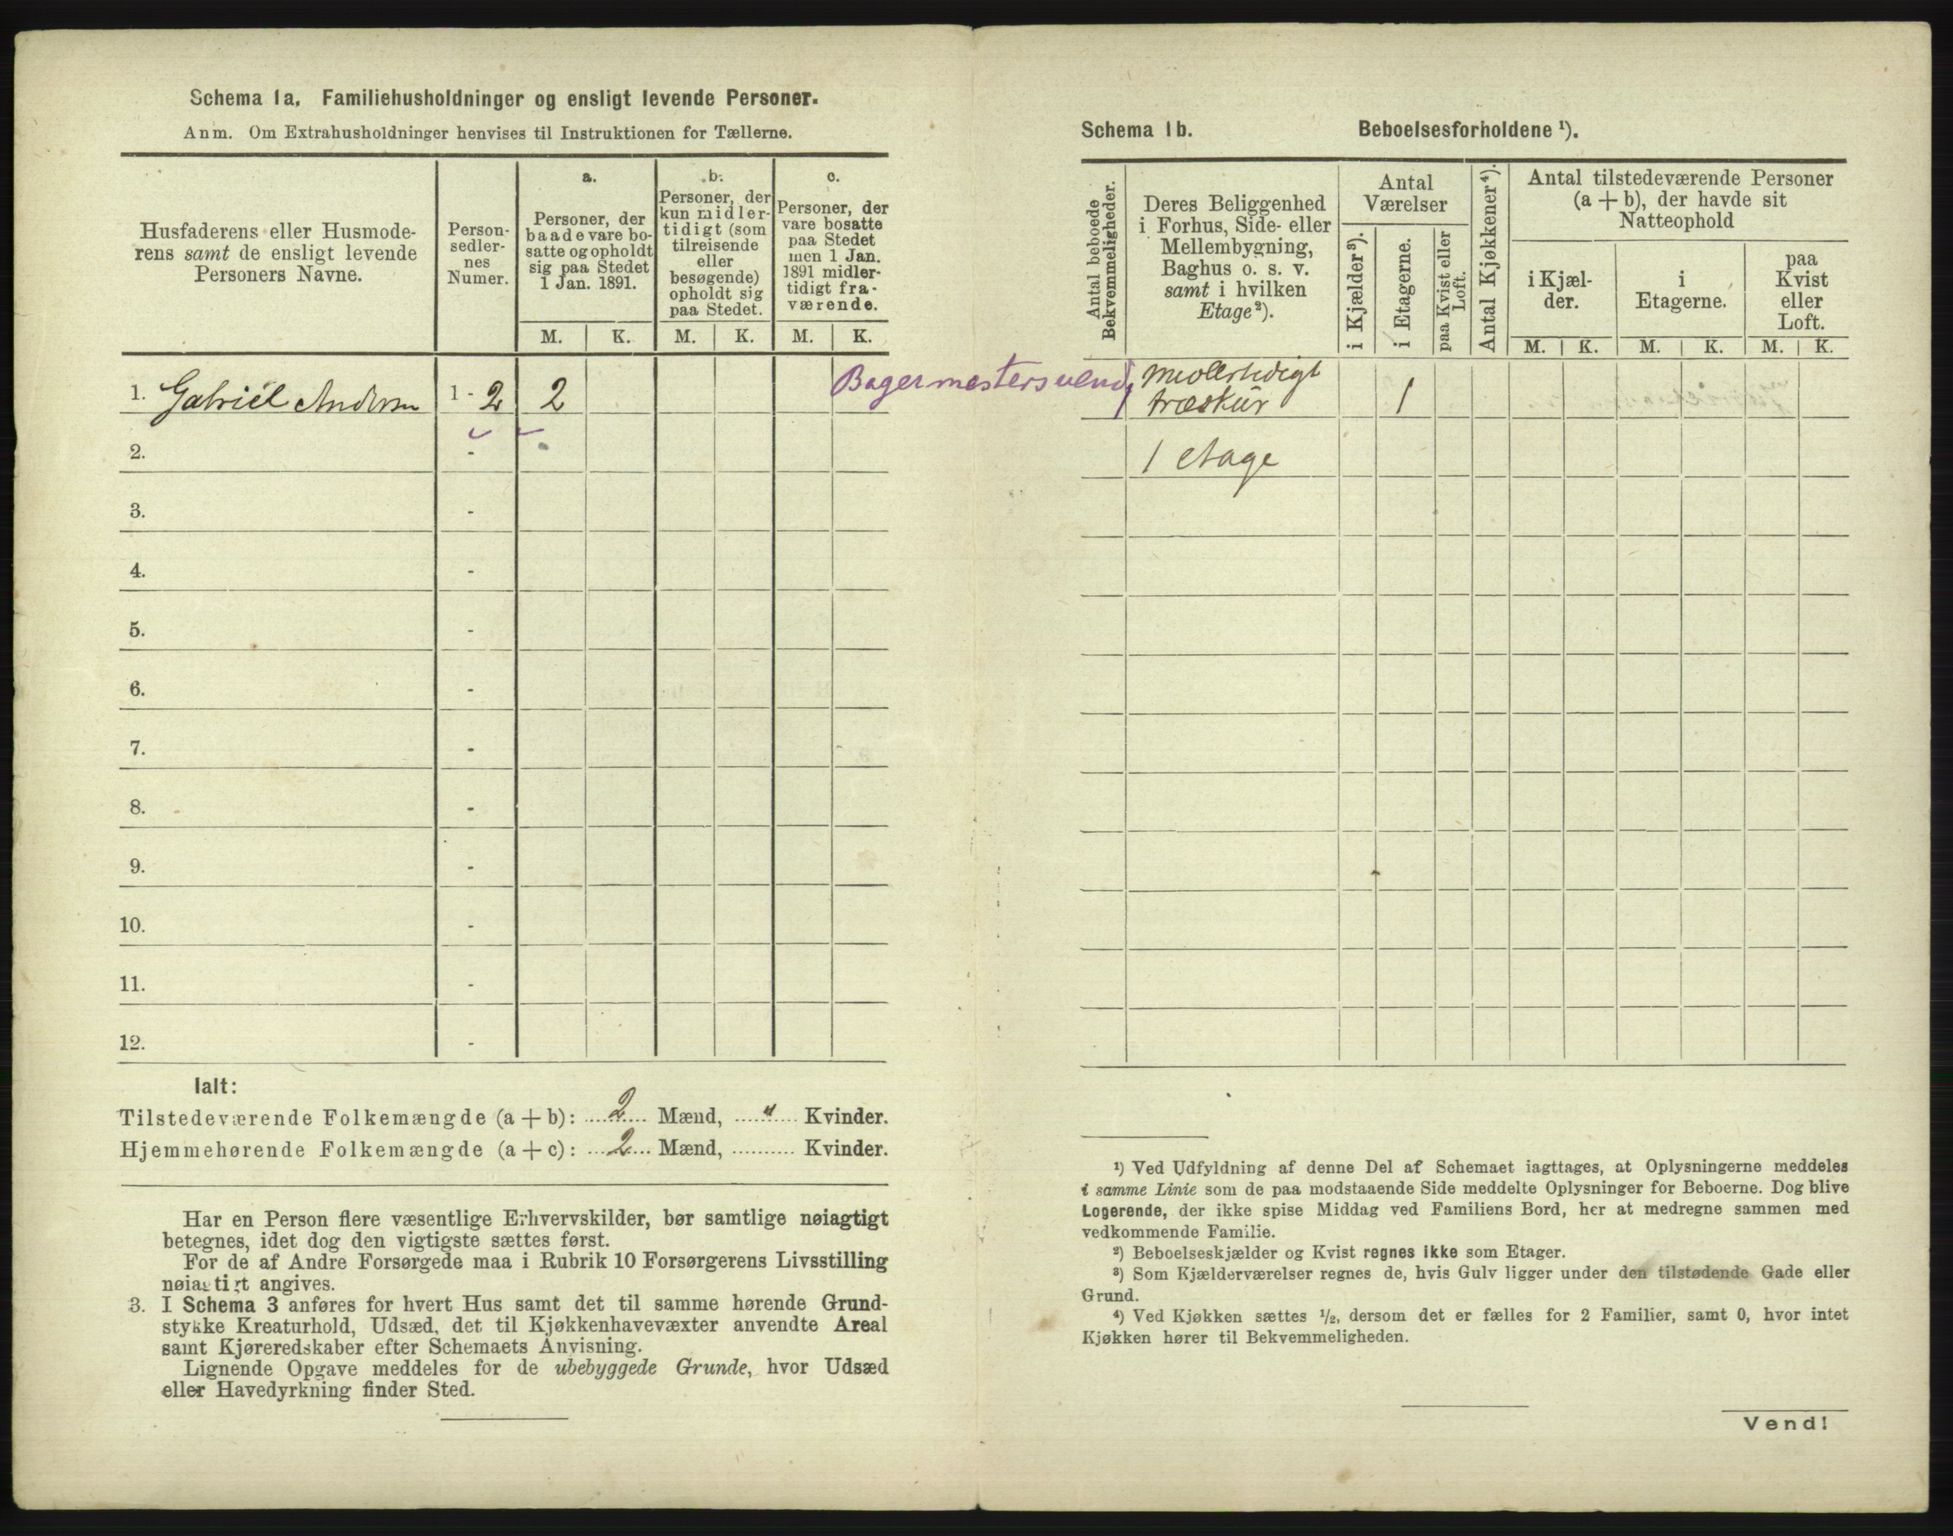 Schema 1a. Familiehusholdninger og ensligt levende Personer.
Anm. Om Extrahusholdninger henvises til Instruktionen for Tællerne.
Husfaderens eller Husmode-
rens samt de ensligt levende
Personers Navne.
Person-
sedler-
nes
Numer.
a.
Personer, der
baade vare bo-
satte og opholdt
sig paa Stedet
1 Jan. 1891.
b.
Personer, der
kun midler-
tidigt (som
tilreisende
eller
besøgende)
opholdt sig
paa Stedet.
c.
Personer, der
vare bosatte
paa Stedet
men 1 Jan.
1891 midler-
tidigt fra-
værende.
M. K. M. K. M. K.
1. Gabriël Andersen 1 - 2 2
2. -
3. -
4. -
5. -
6. -
7. -
8. -
9. -
10. -
11. -
12. -
Ialt:
Tilstedeværende Folkemængde (a + b): 2 Mænd, " Kvinder.
Hjemmehørende Folkemængde (a + c): 2 Mænd, Kvinder.
Har en Person flere væsentlige Erhvervskilder, bør samtlige nøiagtigt
betegnes, idet dog den vigtigste sættes først.
For de af Andre Forsørgede maa i Rubrik 10 Forsørgerens Livsstilling
nøiagtigt angives.
3. I Schema 3 anføres for hvert Hus samt det til samme hørende Grund-
stykke Kreaturhold, Udsæd, det til Kjøkkenhavevæxter anvendte Areal
samt Kjøreredskaber efter Schemaets Anvisning.
Lignende Opgave meddeles for de ubebyggede Grunde, hvor Udsæd
eller Havedyrkning finder Sted.
Schema 1b. Beboelsesforholdene ¹).
Antal beboede
Bekvemmeligheder.
Deres Beliggenhed
i Forhus, Side- eller
Mellembygning,
Baghus o. s. v.
samt i hvilken
Etage ²).
Antal
Værelser
i Kjælder ³).
i Etagerne.
paa Kvist eller
Loft.
Antal Kjøkkener ⁴).
Antal tilstedeværende Personer
(a + b), der havde sit
Natteophold
i Kjæl-
der.
i
Etagerne.
paa
Kvist
eller
Loft.
M. K. M. K. M. K.
1 midlertidigt 1
træskur
1 etage
¹) Ved Udfyldning af denne Del af Schemaet iagttages, at Oplysningerne meddeles
i samme Linie som de paa modstaaende Side meddelte Oplysninger for Beboerne. Dog blive
Logerende, der ikke spise Middag ved Familiens Bord, her at medregne sammen med
vedkommende Familie.
²) Beboelseskjælder og Kvist regnes ikke som Etager.
³) Som Kjælderværelser regnes de, hvis Gulv ligger under den tilstødende Gade eller
Grund.
⁴) Ved Kjøkken sættes ½, dersom det er fælles for 2 Familier, samt 0, hvor intet
Kjøkken hører til Bekvemmeligheden.
Vend!